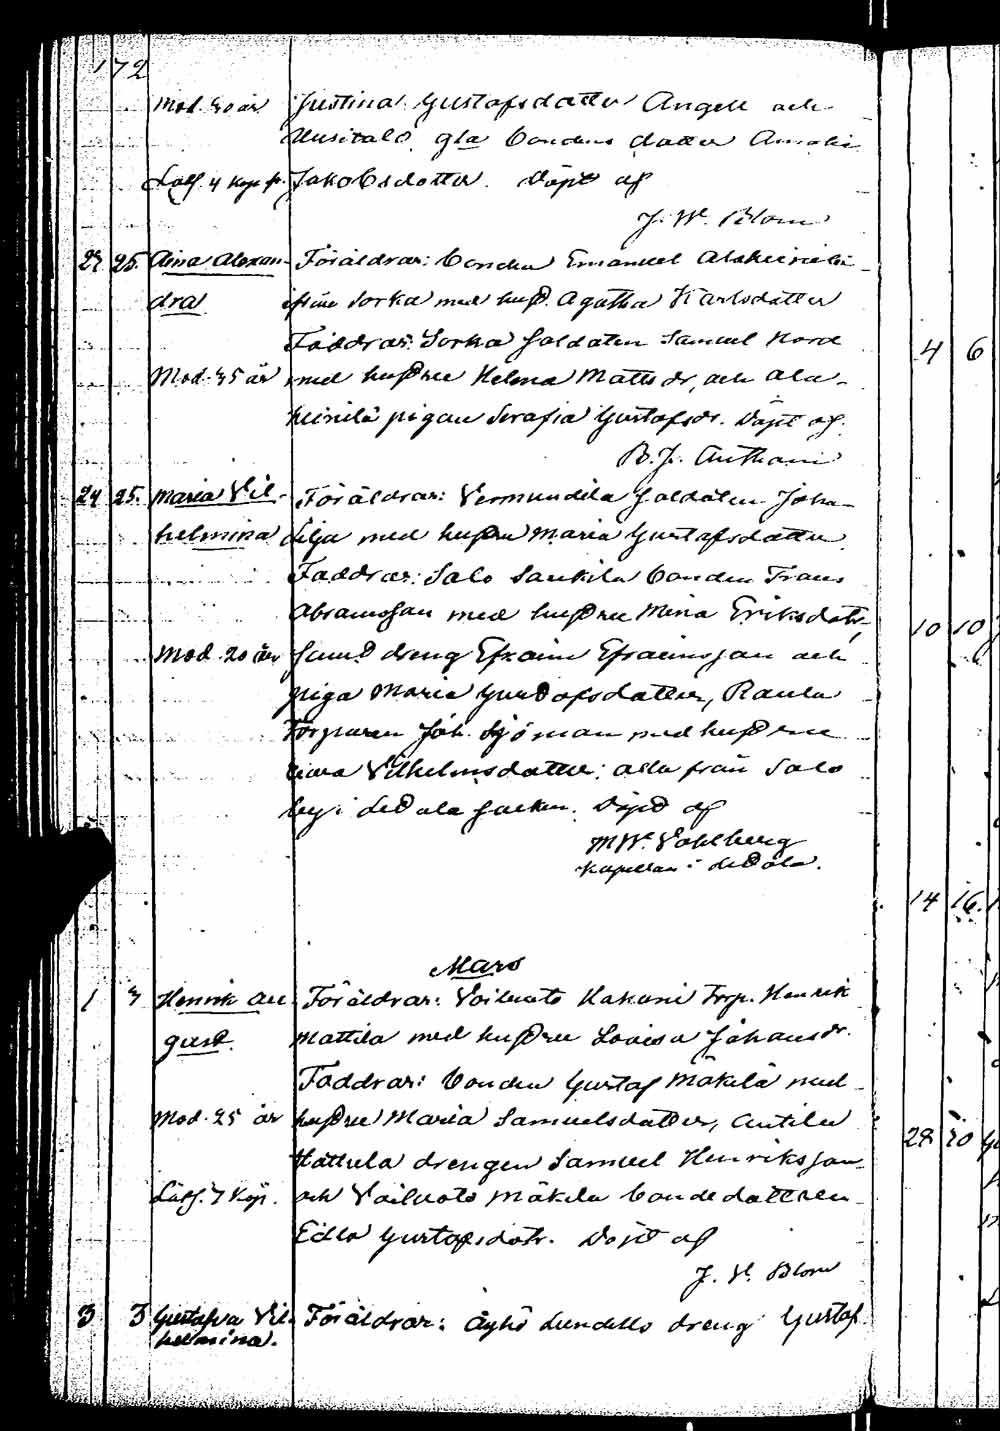 172
Mod. 30 år Justina Gustafsdatter Angell och
Uusitalo gla bondens datter Amalia
Lösf. 4 kop. Jakobsdotter. Döpt af
J. W. Blom
24. 25. Aina Alexan- Föräldrar: bonden Emanuel Alaheinilä
dra Sorka med huſt. Agatha Karlsdatter
Faddrar: Sorka Soldaten Samuel Nord
Mod. 35 år med huſtru Helena Matts dr, och Ala-
heinilä pigan Serafia Gustafsdr. Döpt af
B. J. Anthoni
24 25. Maria Vil- Föräldrar: Vermundila Soldaten Joha-
helmina Lilja med huſtru Maria Gustafsdatter
Faddrar: Salo Sankila bonden Frans
Abramsſon med huſtru Mina Eriksdatr,
Mod. 20 år samt dreng Efraim Efraimsſon och
piga Maria Gustafsdatter, Raula
Torparen Joh. Sjöman med huſtru
Vilhelmsdatter; alla från Salo
by i Letala ſocken. Döpt af
M W. Vahlberg
Kapellan i Letala.
Mars
1 3 Henrik Au- Föräldrar: Voiluoto Hakuni Torp. Henrik
gust. Mattila med huſtru Lovisa Johansdr.
Faddrar: bonden Gustaf Mäkilä med
Mod. 25 år huſtru Maria Samuelsdatter, Antila
Hattula drengen Samuel Henriksſon
Lösf. 7 Kop. och Voiluoto Mäkilä bondedattren
Edla Gustafsdatr. Döpt af
J. V. Blom
3 3 Gustafva Vil- Föräldrar: Äyhö Lundells dreng Gustaf
helmina.
4 6
10 10
14 16.
28 30